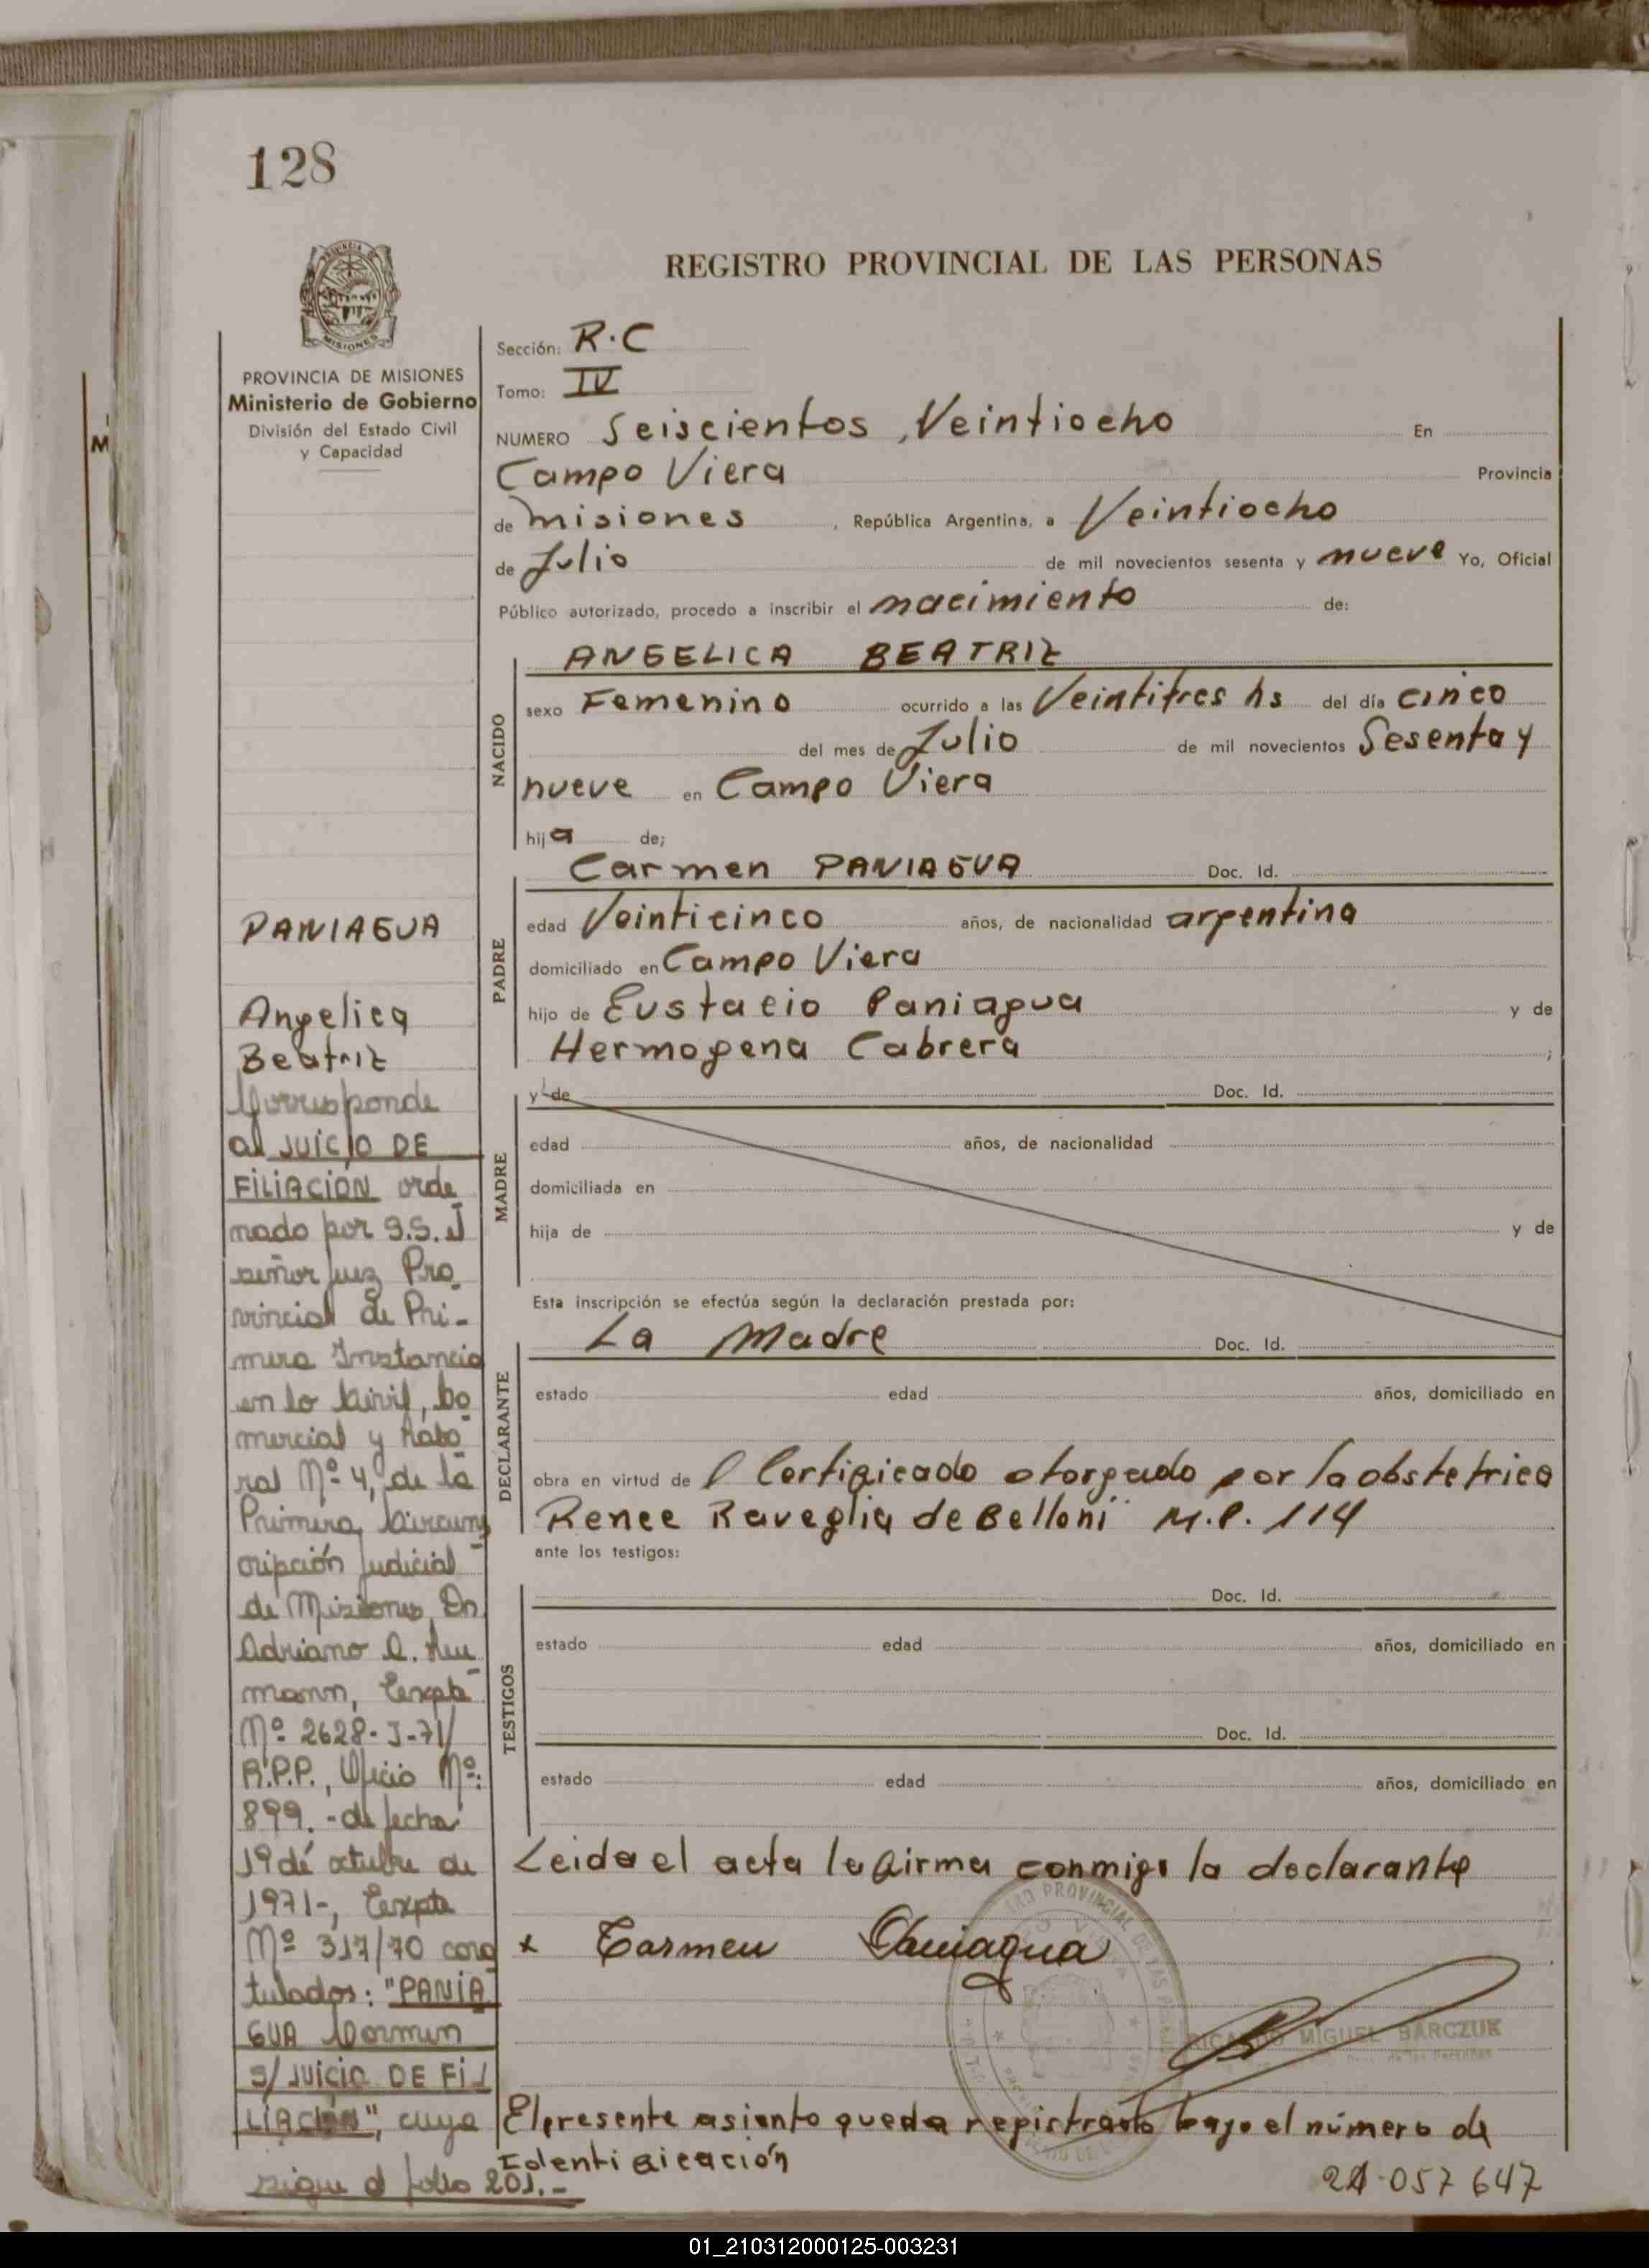 128
REGISTRO PROVINCIAL DE LAS PERSONAS
MISIONES
PROVINCIA DE MISIONES
Ministerio de Gobierno
División del Estado Civil
y Capacidad
Sección: R.C
Tomo: IV
NUMERO Seiscientos, Veintiocho En
Campo Viera Provincia
de misiones, República Argentina, a Veintiocho
de Julio de mil novecientos sesenta y nueve Yo, Oficial
Público autorizado, procedo a inscribir el nacimiento de:
NACIDO
ANGELICA BEATRIZ
sexo Femenino ocurrido a las Veintitres hs del día cinco
del mes de Julio de mil novecientos Sesenta y
nueve en Campo Viera
hija de;
PADRE
Carmen PANIAGUA Doc. Id.
edad Veinticinco años, de nacionalidad argentina
domiciliado en Campo Viera
hijo de Eustacio Paniagua y de
Hermogena Cabrera ;
MADRE
y de Doc. Id.
edad años, de nacionalidad
domiciliada en
hija de y de
Esta inscripción se efectúa según la declaración prestada por:
DECLARANTE
La Madre Doc. Id.
estado edad años, domiciliado en
obra en virtud de l Certificado otorgado por la obstetrica
Renee Raveglia de Belloni M.P. 114
ante los testigos:
TESTIGOS
Doc. Id.
estado edad años, domiciliado en
Doc. Id.
estado edad años, domiciliado en
Leida el acta la firma conmigo la declarante
x Carmen Paniagua
RICARDO MIGUEL BARCZUK
El presente asiento queda registrado bajo el número de
Identificación
21.057647
PANIAGUA
Angelica
Beatriz
Corresponde
al JUICIO DE
FILIACIÓN orde
nado por S.S. el
señor Juez Pro
vincial de Pri-
mera Instancia
en lo Civil, Co
mercial y Labo
ral Nº 4, de la
Primera Circuns
cripción Judicial
de Misiones, Dn
Adriano
mann, Expte
Nº 2628-J-71/
R.P.P., Oficio Nº:
899.- de fecha
19 de octubre de
1971-, Expte
Nº 317/70 cara
tulados: "PANIA
GUA Carmen
S/ JUICIO DE FI
LIACIÓN", cuya
sigue al folio 201.-
01_210312000125-003231